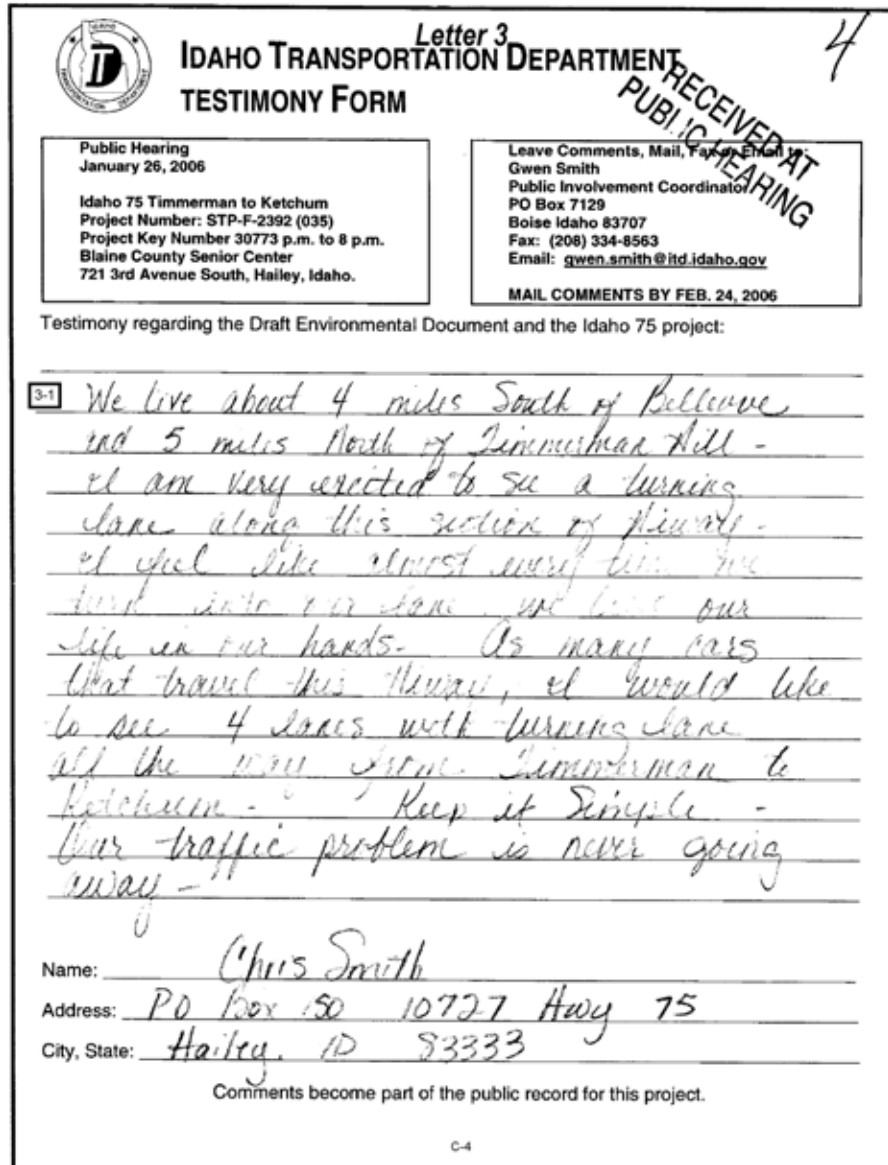 Letter 3
4
IDAHO TRANSPORTATION DEPARTMENT
TESTIMONY FORM
RECEIVED AT
PUBLIC HEARING
IDAHO
TRANSPORTATION DEPARTMENT
Public Hearing
January 26, 2006
Idaho 75 Timmerman to Ketchum
Project Number: STP-F-2392 (035)
Project Key Number 30773 p.m. to 8 p.m.
Blaine County Senior Center
721 3rd Avenue South, Hailey, Idaho.
Leave Comments, Mail, Fax or Email to:
Gwen Smith
Public Involvement Coordinator
PO Box 7129
Boise Idaho 83707
Fax: (208) 334-8563
Email: gwen.smith@itd.idaho.gov
MAIL COMMENTS BY FEB. 24, 2006
Testimony regarding the Draft Environmental Document and the Idaho 75 project:
3-1 We live about 4 miles South of Bellevue
and 5 miles North of Timmerman Hill -
I am very excited to see a turning
lane along this section of Hiway -
I feel like almost every time we
turn into our lane we our
life in our hands. As many cars
that travel this Hiway, I would like
to see 4 lanes with turning lane
all the way from Timmerman to
Ketchum - Keep it Simple -
Our traffic problem is never going
away -
Name: Chris Smith
Address: PO Box 150 10727 Hwy 75
City, State: Hailey, ID 83333
Comments become part of the public record for this project.
C-4